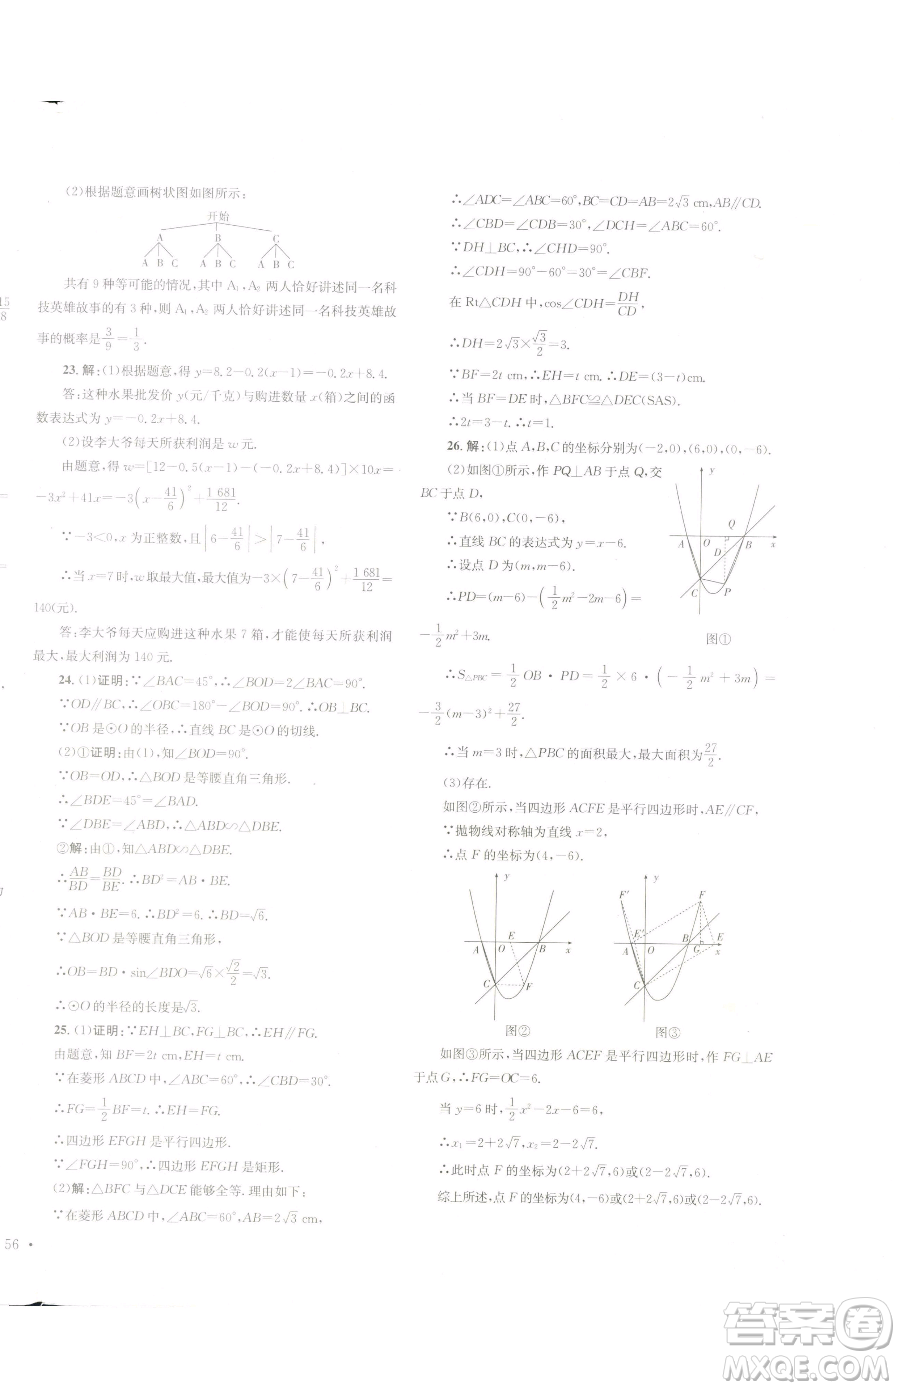 15
8
(2)根据题意画树状图如图所示:
开始
A B C
A B C A B C A B C
共有 9 种等可能的情况,其中 A₁、A₂ 两人恰好讲述同一名科
技英雄故事的有 3 种,则 A₁、A₂ 两人恰好讲述同一名科技英雄故
事的概率是 3/9=1/3.
23. 解:(1)根据题意,得 y=8.2-0.2(x-1)=-0.2x+8.4.
答:这种水果批发价 y(元/千克)与购进数量 x(箱)之间的函
数表达式为 y=-0.2x+8.4.
(2)设李大爷每天所获利润是 w 元.
由题意,得 w=[12-0.5(x-1)-(-0.2x+8.4)]×10x=
-3x²+41x=-3(x-41/6)²+1 681/12.
∵-3<0,x 为正整数,且|6-41/6|>|7-41/6|,
∴当 x=7 时,w 取最大值,最大值为-3×(7-41/6)²+1 681/12=
140(元).
答:李大爷每天应购进这种水果 7 箱,才能使每天所获利润
最大,最大利润为 140 元.
24. (1)证明:∵∠BAC=45°,∴∠BOD=2∠BAC=90°.
∵OD∥BC,∴∠OBC=180°-∠BOD=90°.∴OB⊥BC.
∵OB 是⊙O 的半径,∴直线 BC 是⊙O 的切线.
(2)①证明:由(1),知∠BOD=90°.
∵OB=OD,∴△BOD 是等腰直角三角形.
∴∠BDE=45°=∠BAD.
∵∠DBE=∠ABD,∴△ABD∽△DBE.
②解:由①,知△ABD∽△DBE.
∴AB/BD=BD/BE.∴BD²=AB·BE.
∵AB·BE=6,∴BD²=6.∴BD=√6.
∵△BOD 是等腰直角三角形,
∴OB=BD·sin∠BDO=√6×√2/2=√3.
∴⊙O 的半径的长度是√3.
25. (1)证明:∵EH⊥BC,FG⊥BC,∴EH∥FG.
由题意,知 BF=2t cm,EH=t cm.
∵在菱形 ABCD 中,∠ABC=60°,∴∠CBD=30°.
∴FG=1/2BF=t.∴EH=FG.
∴四边形 EFGH 是平行四边形.
∵∠FGH=90°,∴四边形 EFGH 是矩形.
(2)解:△BFC 与△DCE 能够全等. 理由如下:
∵在菱形 ABCD 中,∠ABC=60°,AB=2√3 cm,
56 ·
∴∠ADC=∠ABC=60°,BC=CD=AB=2√3 cm,AB∥CD.
∴∠CBD=∠CDB=30°,∠DCH=∠ABC=60°.
∵DH⊥BC,∴∠CHD=90°.
∴∠CDH=90°-60°=30°=∠CBF.
在 Rt△CDH 中,cos∠CDH=DH/CD,
∴DH=2√3×√3/2=3.
∵BF=2t cm,EH=t cm,∴DE=(3-t)cm.
∴当 BF=DE 时,△BFC≌△DEC(SAS).
∴2t=3-t.∴t=1.
26. 解:(1)点 A,B,C 的坐标分别为(-2,0),(6,0),(0,-6).
(2)如图①所示,作 PQ⊥AB 于点 Q,交
BC 于点 D,
∵B(6,0),C(0,-6),
∴直线 BC 的表达式为 y=x-6.
∴设点 D 为(m,m-6).
∴PD=(m-6)-(1/2m²-2m-6)=
-1/2m²+3m.
y
Q
A O B x
D
C P
图①
∴S△PBC=1/2OB·PD=1/2×6·(-1/2m²+3m)=
-3/2(m-3)²+27/2.
∴当 m=3 时,△PBC 的面积最大,最大面积为27/2.
(3)存在.
如图②所示,当四边形 ACFE 是平行四边形时,AE∥CF,
∵抛物线对称轴为直线 x=2,
∴点 F 的坐标为(4,-6).
y
E
A O B x
C F
图②
F′ y F
E′
A O B G E x
C
图③
如图③所示,当四边形 ACEF 是平行四边形时,作 FG⊥AE
于点 G,∴FG=OC=6.
当 y=6 时,1/2x²-2x-6=6,
∴x₁=2+2√7,x₂=2-2√7.
∴此时点 F 的坐标为(2+2√7,6)或(2-2√7,6).
综上所述,点 F 的坐标为(4,-6)或(2+2√7,6)或(2-2√7,6).
答案圈
MXQE.COM